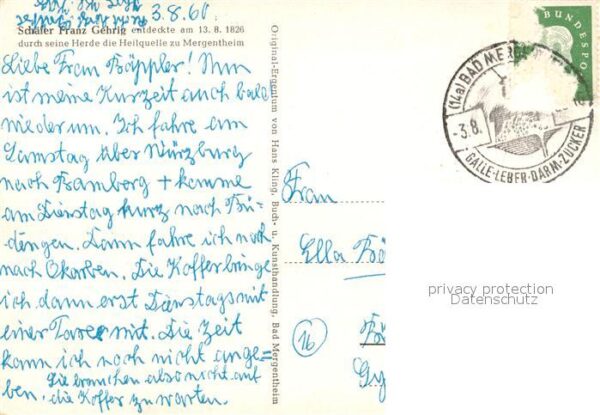 3.8.60
Schäfer Franz Gehrig entdeckte am 13. 8. 1826
durch seine Herde die Heilquelle zu Mergentheim
Liebe Frau Böppler! Nun
ist meine Kurzeit auch bald
wiederum. Ich fahre am
Samstag über Würzburg
nach Bamberg + komme
am Dienstag kurz nach Bü-
dingen. Dann fahre ich noch
nach Okarben. Die Koffer bringe
ich dann erst Dienstags mit
einer Taxe mit. Die Zeit
kann ich noch nicht ange=
ben. Sie brauchen also nicht auf
die Koffer zu warten.
Original-Eigentum von Hans Kling, Buch- u. Kunsthandlung, Bad Mergentheim
Frau
Ella Bö
16
BUNDESPO
(14a) BAD MERGEN
-3.8.
GALLE-LEBER-DARM-ZUCKER
privacy protection
Datenschutz